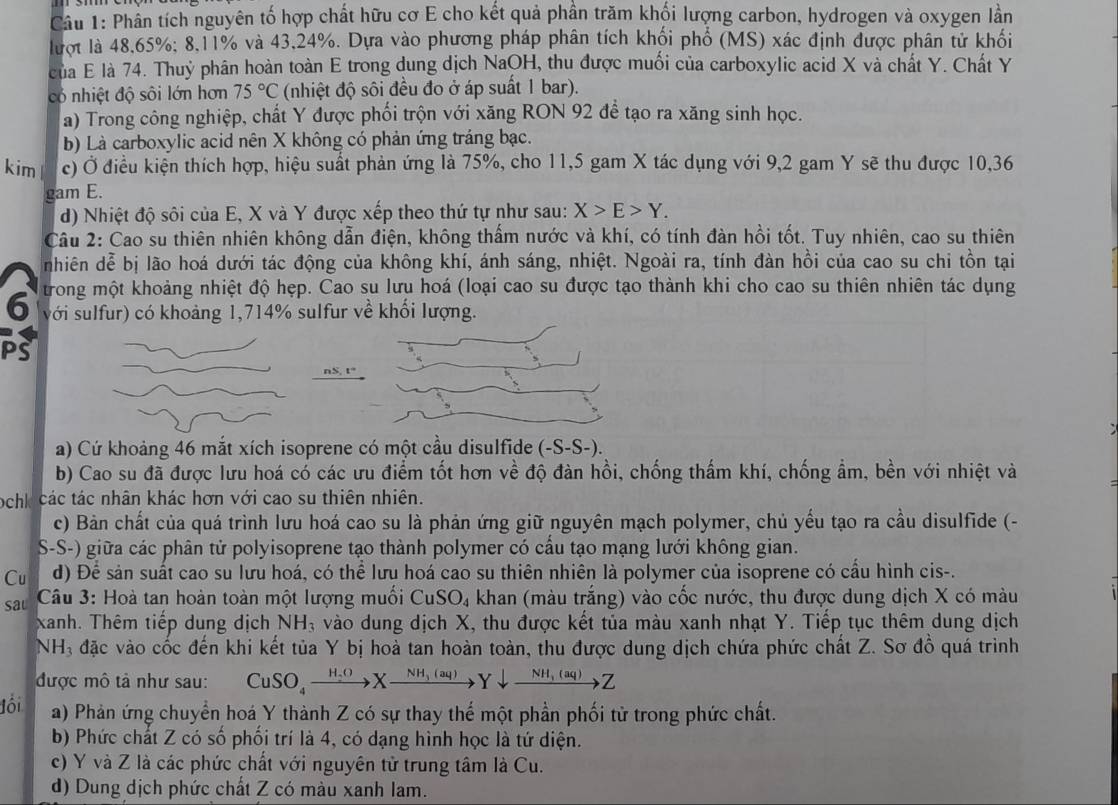 Câu 1: Phân tích nguyên tố hợp chất hữu cơ E cho kết quả phần trăm khối lượng carbon, hydrogen và oxygen lần
lượt là 48,65%; 8,11% và 43,24%. Dựa vào phương pháp phân tích khối phổ (MS) xác định được phân tử khối
của E là 74. Thuỷ phân hoàn toàn E trong dung dịch NaOH, thu được muối của carboxylic acid X và chất Y. Chất Y
có nhiệt độ sôi lớn hơn 75 °C (nhiệt độ sôi đều đo ở áp suất 1 bar).
a) Trong công nghiệp, chất Y được phối trộn với xăng RON 92 để tạo ra xăng sinh học.
b) Là carboxylic acid nên X không có phản ứng tráng bạc.
kim
c) Ở điều kiện thích hợp, hiệu suất phản ứng là 75%, cho 11,5 gam X tác dụng với 9,2 gam Y sẽ thu được 10,36
gam E.
d) Nhiệt độ sôi của E, X và Y được xếp theo thứ tự như sau: X > E > Y.
Câu 2: Cao su thiên nhiên không dẫn điện, không thấm nước và khí, có tính đàn hồi tốt. Tuy nhiên, cao su thiên
nhiên dễ bị lão hoá dưới tác động của không khí, ánh sáng, nhiệt. Ngoài ra, tính đàn hồi của cao su chỉ tồn tại
trong một khoảng nhiệt độ hẹp. Cao su lưu hoá (loại cao su được tạo thành khi cho cao su thiên nhiên tác dụng
6
với sulfur) có khoảng 1,714% sulfur về khối lượng.
PS
nS, t°
a) Cứ khoảng 46 mắt xích isoprene có một cầu disulfide (-S-S-).
b) Cao su đã được lưu hoá có các ưu điểm tốt hơn về độ đàn hồi, chống thấm khí, chống ẩm, bền với nhiệt và
các tác nhân khác hơn với cao su thiên nhiên.
c) Bản chất của quá trình lưu hoá cao su là phản ứng giữ nguyên mạch polymer, chủ yếu tạo ra cầu disulfide (-
S-S-) giữa các phân tử polyisoprene tạo thành polymer có cấu tạo mạng lưới không gian.
Cu
d) Để sản suất cao su lưu hoá, có thể lưu hoá cao su thiên nhiên là polymer của isoprene có cấu hình cis-.
sau
Câu 3: Hoà tan hoàn toàn một lượng muối CuSO₄ khan (màu trắng) vào cốc nước, thu được dung dịch X có màu
xanh. Thêm tiếp dung dịch NH₃ vào dung dịch X, thu được kết tủa màu xanh nhạt Y. Tiếp tục thêm dung dịch
NH₃ đặc vào cốc đến khi kết tủa Y bị hoà tan hoàn toàn, thu được dung dịch chứa phức chất Z. Sơ đồ quá trình
được mô tả như sau: CuSO₄ —H₂O→ X —NH₃ (aq)→ Y ↓ —NH₃ (aq)→ Z
a) Phản ứng chuyển hoá Y thành Z có sự thay thế một phần phối tử trong phức chất.
b) Phức chất Z có số phối trí là 4, có dạng hình học là tứ diện.
c) Y và Z là các phức chất với nguyên tử trung tâm là Cu.
d) Dung dịch phức chất Z có màu xanh lam.